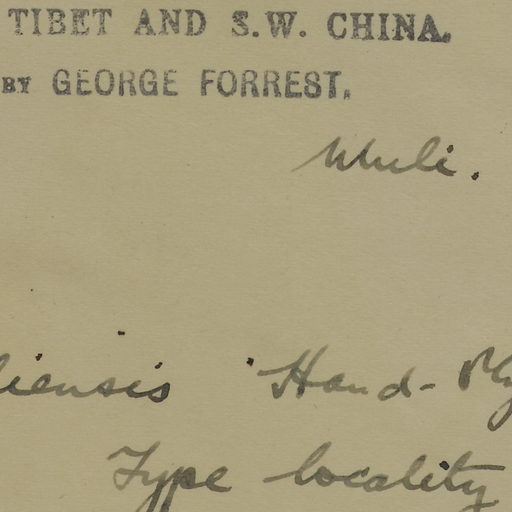 TIBET AND S.W. CHINA.
BY GEORGE FORREST.
Muli.
liensis Hand-
Type locality